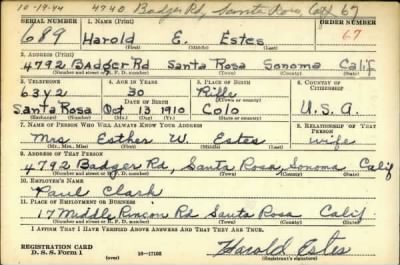 10-19-44 4740 Badger Rd, Santa Rosa, Cal 67
SERIAL NUMBER 1. NAME (Print) ORDER NUMBER
689 Harold E. Estes 67
(First) (Middle) (Last)
2. ADDRESS (Print)
4792 Badger Rd Santa Rosa Sonoma Calif
(Number and street or R. F. D. number) (Town) (County) (State)
3. TELEPHONE 4. AGE IN YEARS 5. PLACE OF BIRTH 6. COUNTRY OF CITIZENSHIP
63Y2 30 Rifle
DATE OF BIRTH (Town or county)
Santa Rosa Oct 13 1910 Colo U.S.A.
(Exchange) (Number) (Mo.) (Day) (Yr.) (State or country)
7. NAME OF PERSON WHO WILL ALWAYS KNOW YOUR ADDRESS 8. RELATIONSHIP OF THAT PERSON
Mrs Esther W. Estes wife
(Mr., Mrs., Miss) (First) (Middle) (Last)
9. ADDRESS OF THAT PERSON
4792 Badger Rd, Santa Rosa, Sonoma Calif
(Number and street or R. F. D. number) (Town) (County) (State)
10. EMPLOYER'S NAME
Paul Clark
11. PLACE OF EMPLOYMENT OR BUSINESS
17 Middle Rincon Rd Santa Rosa Calif.
(Number and street or R. F. D. number) (Town) (County) (State)
I AFFIRM THAT I HAVE VERIFIED ABOVE ANSWERS AND THAT THEY ARE TRUE.
REGISTRATION CARD
D. S. S. Form 1 (over) 16—17105 Harold Estes
(Registrant's signature)